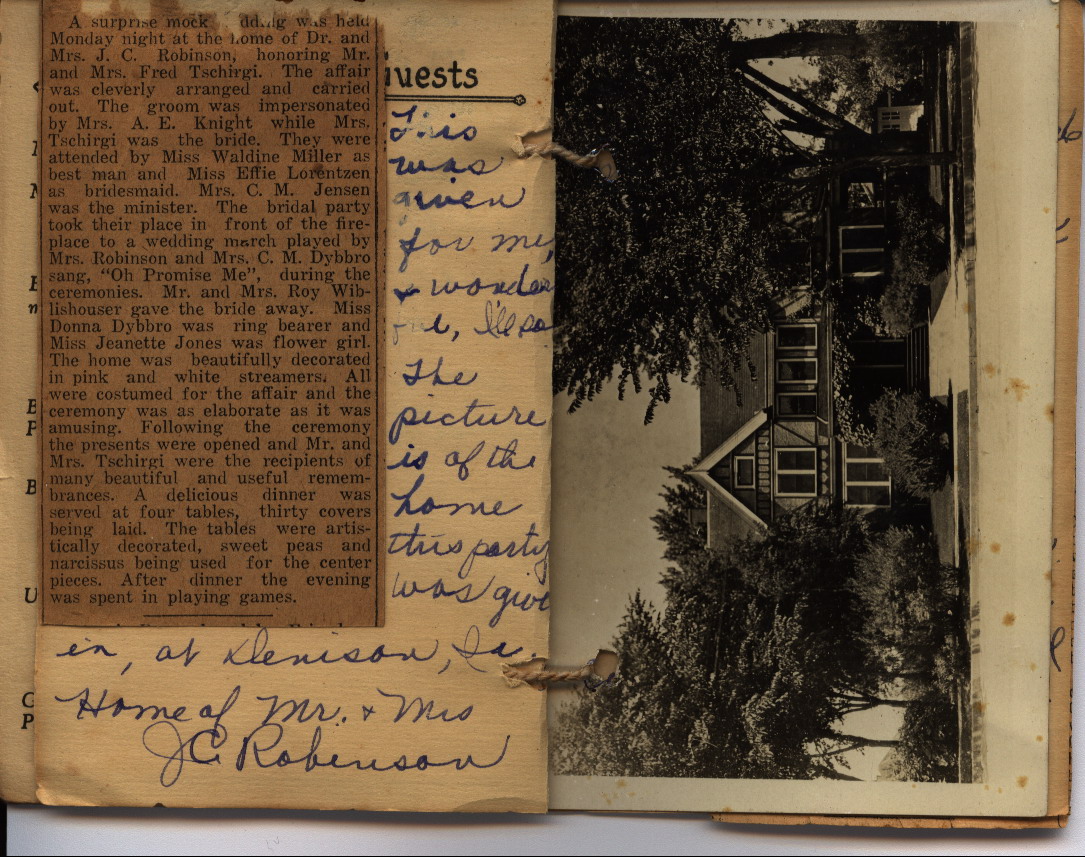 A surprise mock dding was held
Monday night at the home of Dr. and
Mrs. J. C. Robinson, honoring Mr.
and Mrs. Fred Tschirgi. The affair
was cleverly arranged and carried
out. The groom was impersonated
by Mrs. A. E. Knight while Mrs.
Tschirgi was the bride. They were
attended by Miss Waldine Miller as
best man and Miss Effie Lorentzen
as bridesmaid. Mrs. C. M. Jensen
was the minister. The bridal party
took their place in front of the fire-
place to a wedding march played by
Mrs. Robinson and Mrs. C. M. Dybbro
sang, "Oh Promise Me", during the
ceremonies. Mr. and Mrs. Roy Wib-
lishouser gave the bride away. Miss
Donna Dybbro was ring bearer and
Miss Jeanette Jones was flower girl.
The home was beautifully decorated
in pink and white streamers. All
were costumed for the affair and the
ceremony was as elaborate as it was
amusing. Following the ceremony
the presents were opened and Mr. and
Mrs. Tschirgi were the recipients of
many beautiful and useful remem-
brances. A delicious dinner was
served at four tables, thirty covers
being laid. The tables were artis-
tically decorated, sweet peas and
narcissus being used for the center
pieces. After dinner the evening
was spent in playing games.
uests
This
was
given
for me,
& wonder
ful,
The
picture
is of the
home
this party
was give
in, at Denison, Ia.
Home of Mr. & Mrs
J C. Robinson